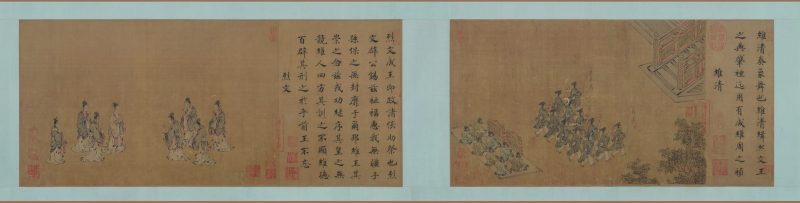 維清奏象舞也維清緝熙文王
之典肇禋迄用有成維周之禎
維清
烈文成王即政諸侯助祭也烈
文辟公錫茲祉福惠我無疆子
孫保之無封靡于爾邦維王其
崇之念茲戎功繼序其皇之無
競維人四方其訓之不顯維德
百辟其刑之於乎前王不忘
烈文